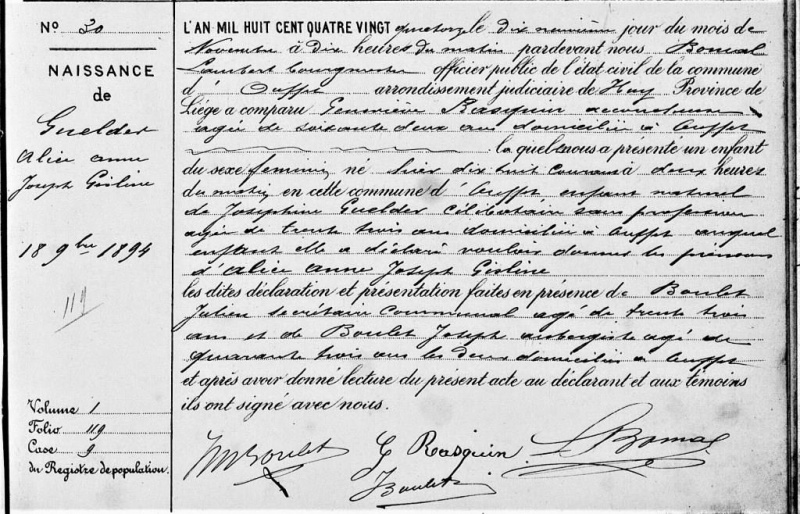 Nº 30
NAISSANCE
de
Guelder
Alice Anne
Joseph Gisline
18 9bre 1894
119
Volume 1
Folio 119
Case 9
du Registre de population.
L'AN MIL HUIT CENT QUATRE VINGT quatorze le dix neuvième jour du mois de
Novembre à dix heures du matin pardevant nous Bomal
Lambert bourgmestre officier public de l'état civil de la commune
d' Ouffet arrondissement judiciaire de Huy Province de
Liège a comparu Geneviève Rasquin accoucheuse
agée de soixante deux ans domiciliée à Ouffet
laquelle nous a présenté un enfant
du sexe féminin né hier dix huit courant à deux heures
du matin en cette commune d'Ouffet enfant naturel
de Joséphine Guelder célibataire sans profession
agée de trente trois ans domiciliée à Ouffet auquel
enfant elle a déclaré vouloir donner les prénoms
d'Alice Anne Joseph Gisline
les dites déclaration et présentation faites en présence de Boulet
Julien secrétaire communal agé de trente trois
ans et de Boulet Joseph aubergiste agé de
quarante trois ans les deux domiciliés à Ouffet
et après avoir donné lecture du présent acte au déclarant et aux témoins
ils ont signé avec nous.
Boulet G Rasquin L Bomal
J Boulet